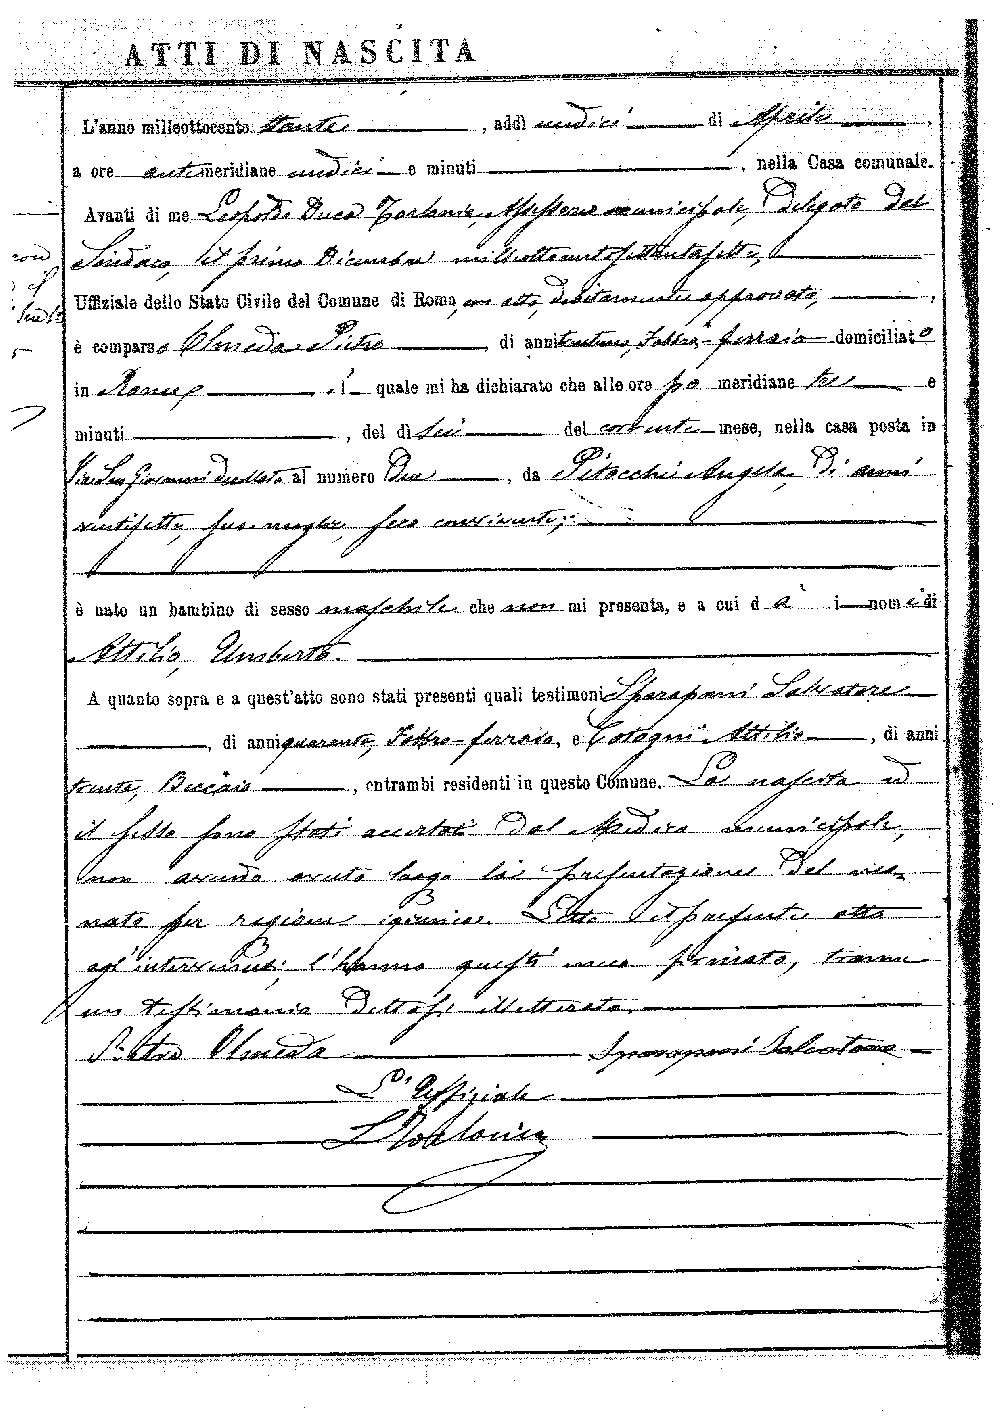 ATTI DI NASCITA
L'anno milleottocento ottanta, addì undici di Aprile,
a ore antimeridiane undici e minuti, nella Casa comunale.
Avanti di me Leopoldo Duca Torlonia, Assessore municipale, Delegato dal
Sindaco, il primo Dicembre milleottocentosettantasette,
Uffiziale dello Stato Civile del Comune di Roma, con atto debitamente approvato,
è comparso Olmeda Pietro, di anni Fabbro-ferraio domiciliato
in Roma, il quale mi ha dichiarato che alle ore po meridiane tre e
minuti, del dì sei del corrente mese, nella casa posta in
Via San Giovanni al numero Due, da Pitocchi Angela, di anni
ventisette, sua moglie, seco convivente,
è nato un bambino di sesso maschile che non mi presenta, e a cui dà i nomi di
Attilio, Umberto.
A quanto sopra e a quest'atto sono stati presenti quali testimoni Sparapani Salvatore
, di anni quaranta, Fabbro-ferraio, e Cotogni Attilio, di anni
trenta, Beccaio, entrambi residenti in questo Comune. La nascita ed
il sesso sono stati accertati dal Medico municipale,
non avendo avuto luogo la presentazione del neo-
nato per ragioni igieniche. Letto il presente atto
agl'intervenuti, l'hanno questi meco firmato, tranne
un testimonio dettosi illetterato.
Pietro Olmeda Sparapani Salvatore
L'Uffiziale
L Torlonia